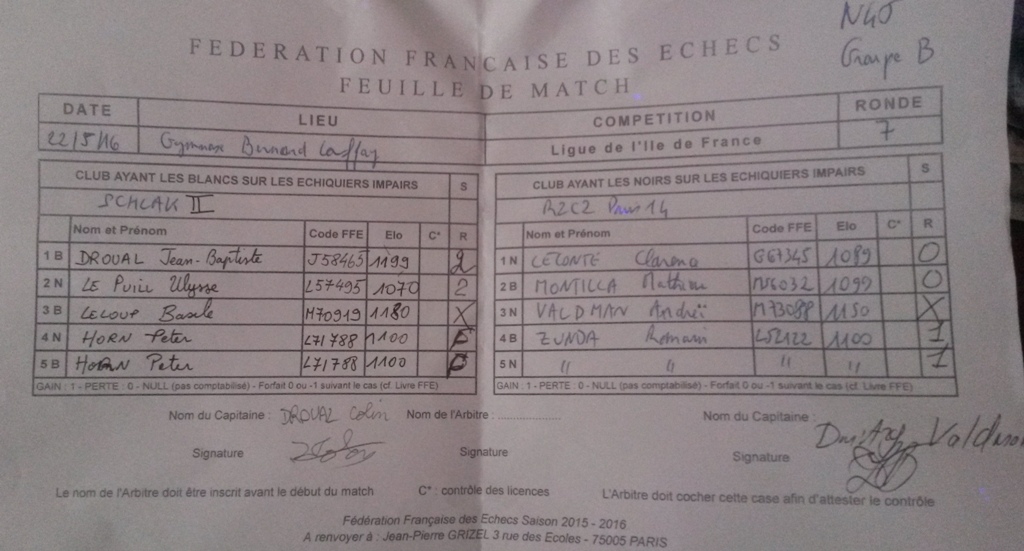 N40
Groupe B
FEDERATION FRANCAISE DES ECHECS
FEUILLE DE MATCH
DATE LIEU COMPETITION RONDE
22/5/16 Gymnase Bernard Laffay Ligue de l'Ile de France 7
CLUB AYANT LES BLANCS SUR LES ECHIQUIERS IMPAIRS S CLUB AYANT LES NOIRS SUR LES ECHIQUIERS IMPAIRS S
SCHCAK II R2C2 Paris 14
Nom et Prénom Code FFE Elo C* R Nom et Prénom Code FFE Elo C* R
1 B DROUAL Jean-Baptiste J58465 1199 2 1 N LECONTE 1089 0
2 N LE Ulysse L57495 1070 2 2 B MONTILLA 1099 0
3 B LELOUP Basile M70919 1180 X 3 N VALDMAN Andreï M73088 1150 X
4 N HORN Peter L71788 1100 F 4 B ZUNDA Romain L52122 1100 1
5 B HORN Peter L71788 1100 5 N " " " " 1
GAIN : 1 - PERTE : 0 - NULL (pas comptabilisé) - Forfait 0 ou -1 suivant le cas (cf. Livre FFE) GAIN : 1 - PERTE : 0 - NULL (pas comptabilisé) - Forfait 0 ou -1 suivant le cas (cf. Livre FFE)
Nom du Capitaine : DROUAL Colin Nom de l'Arbitre : .................... Nom du Capitaine : Valdman
Signature Signature Signature
Le nom de l'Arbitre doit être inscrit avant le début du match C* : contrôle des licences L'Arbitre doit cocher cette case afin d'attester le contrôle
Fédération Française des Echecs Saison 2015 - 2016
A renvoyer à : Jean-Pierre GRIZEL 3 rue des Ecoles - 75005 PARIS